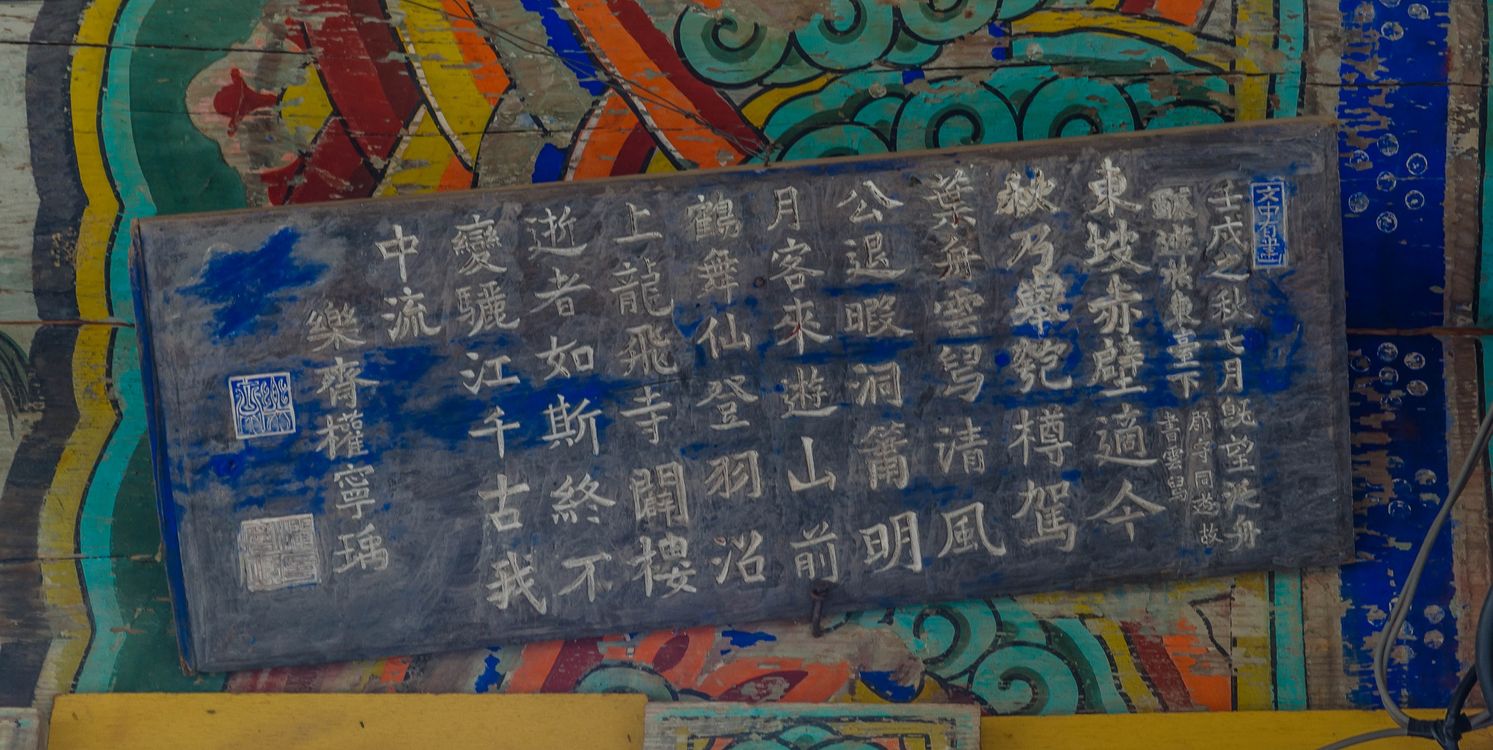 壬戌之秋七月旣望泛舟
東臺下
郡守同遊故
書雲舃
東坡赤壁適今
秋乃擧匏樽駕
葉舟雲舃清風
公退暇洞簫明
月客來遊山前
鶴舞仙登羽沼
上龍飛寺闢樓
逝者如斯終不
變驪江千古我
中流
樂齋權寧瑀